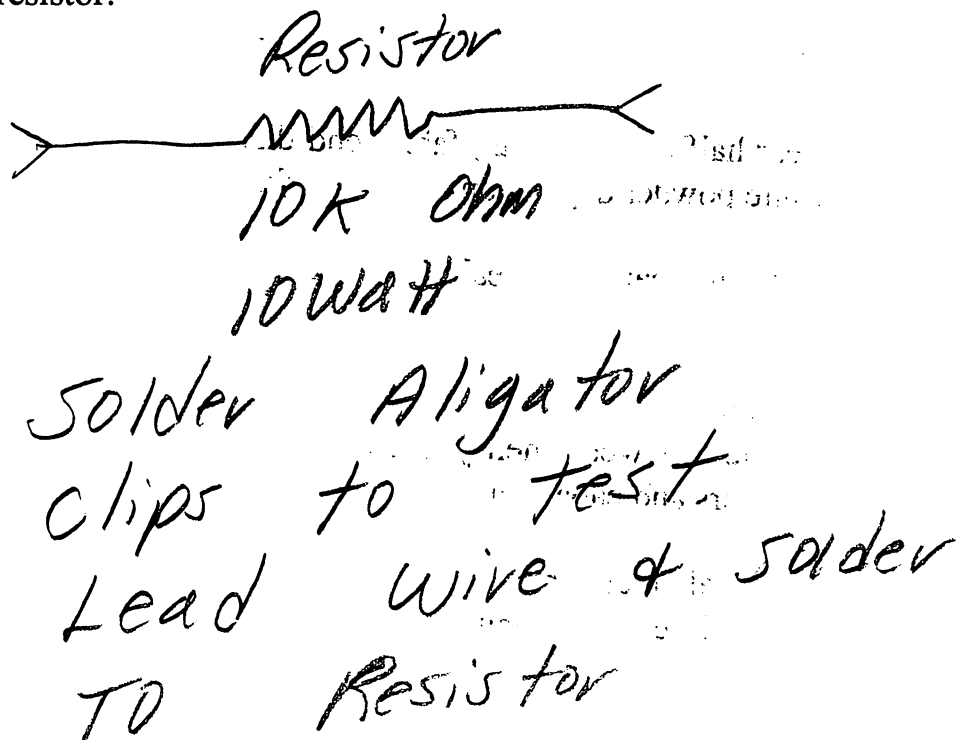 resistor.
Resistor
10K Ohm
10 Watt
Solder Aligator
clips to test
Lead wire & solder
TO Resistor